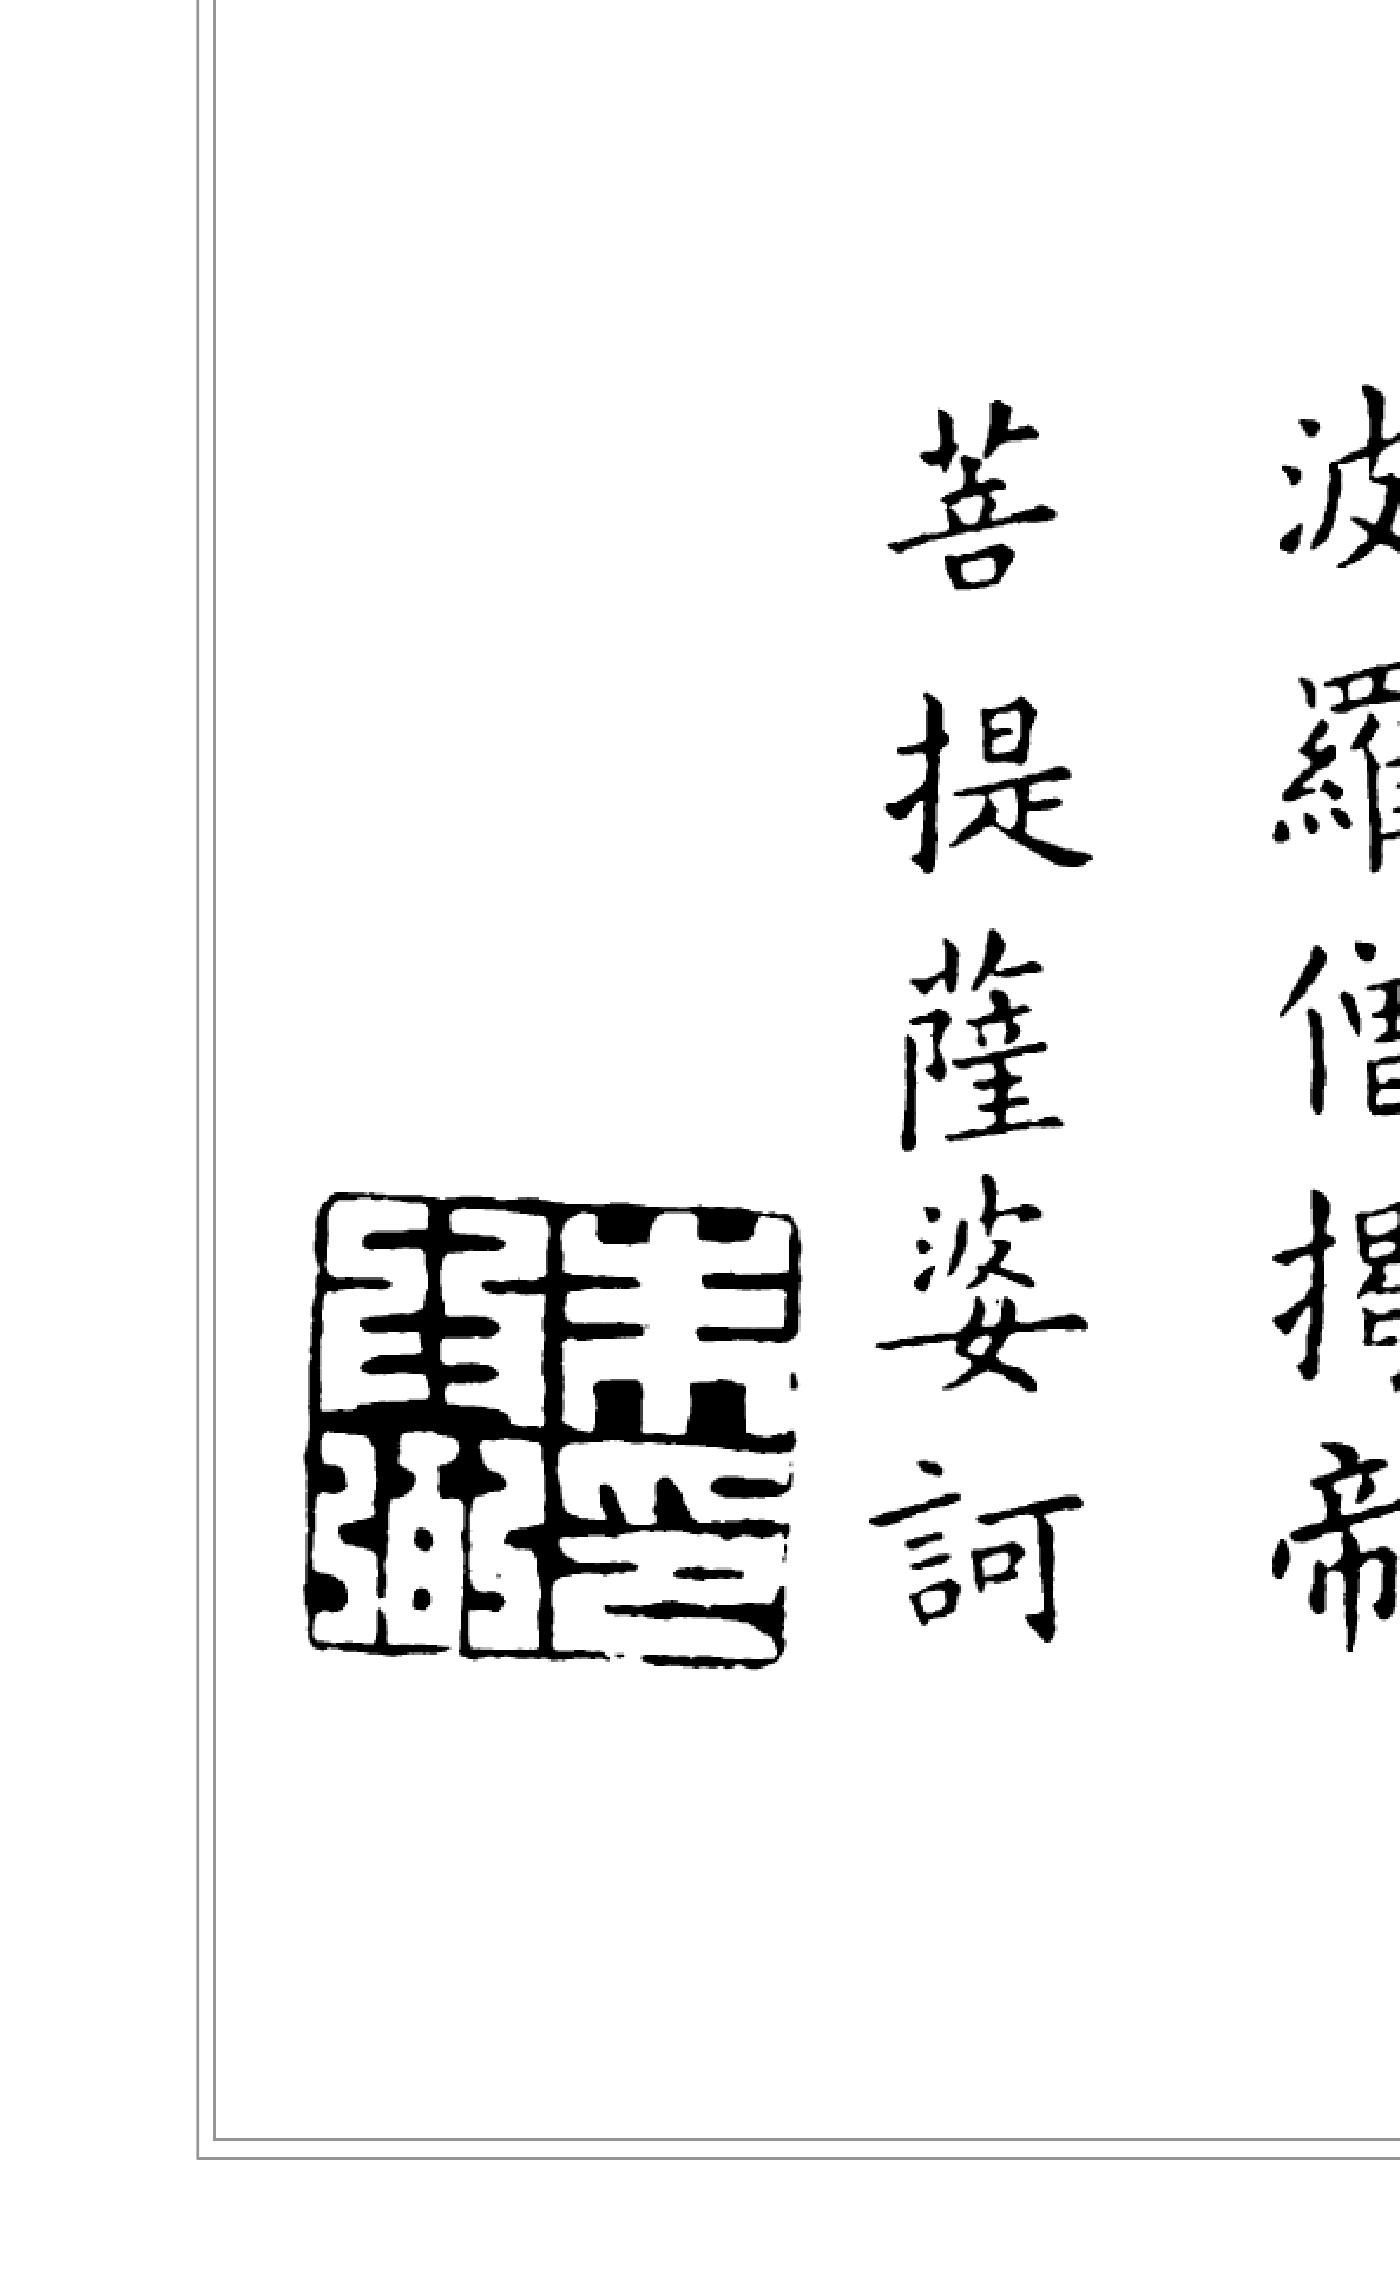 波羅僧揭帝
菩提薩婆訶